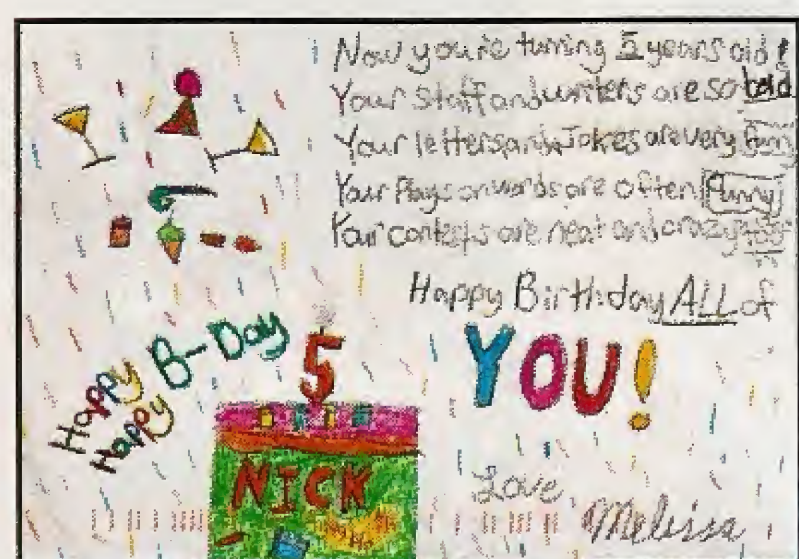 Now you're turning 5 years old!
Your Staff and writers are so bold
Your letters and Jokes are very funny
Your Plays on words are often Punny
Your contests are neat and crazy too
Happy Birthday ALL of
YOU!
Happy Happy B-Day
5
NICK
Love,
Melissa